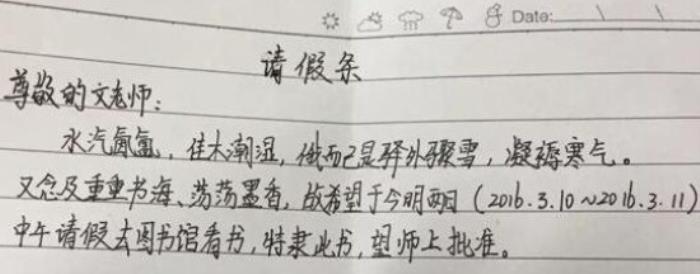 Date:
请假条
尊敬的文老师：
水汽氤氲，佳木潮湿，俄而已是驿外骤雪，凝褥寒气。
又念及重重书海、荡荡墨香，故希望于今明两日（2016.3.10～2016.3.11）
中午请假去图书馆看书，特隶此书，望师上批准。